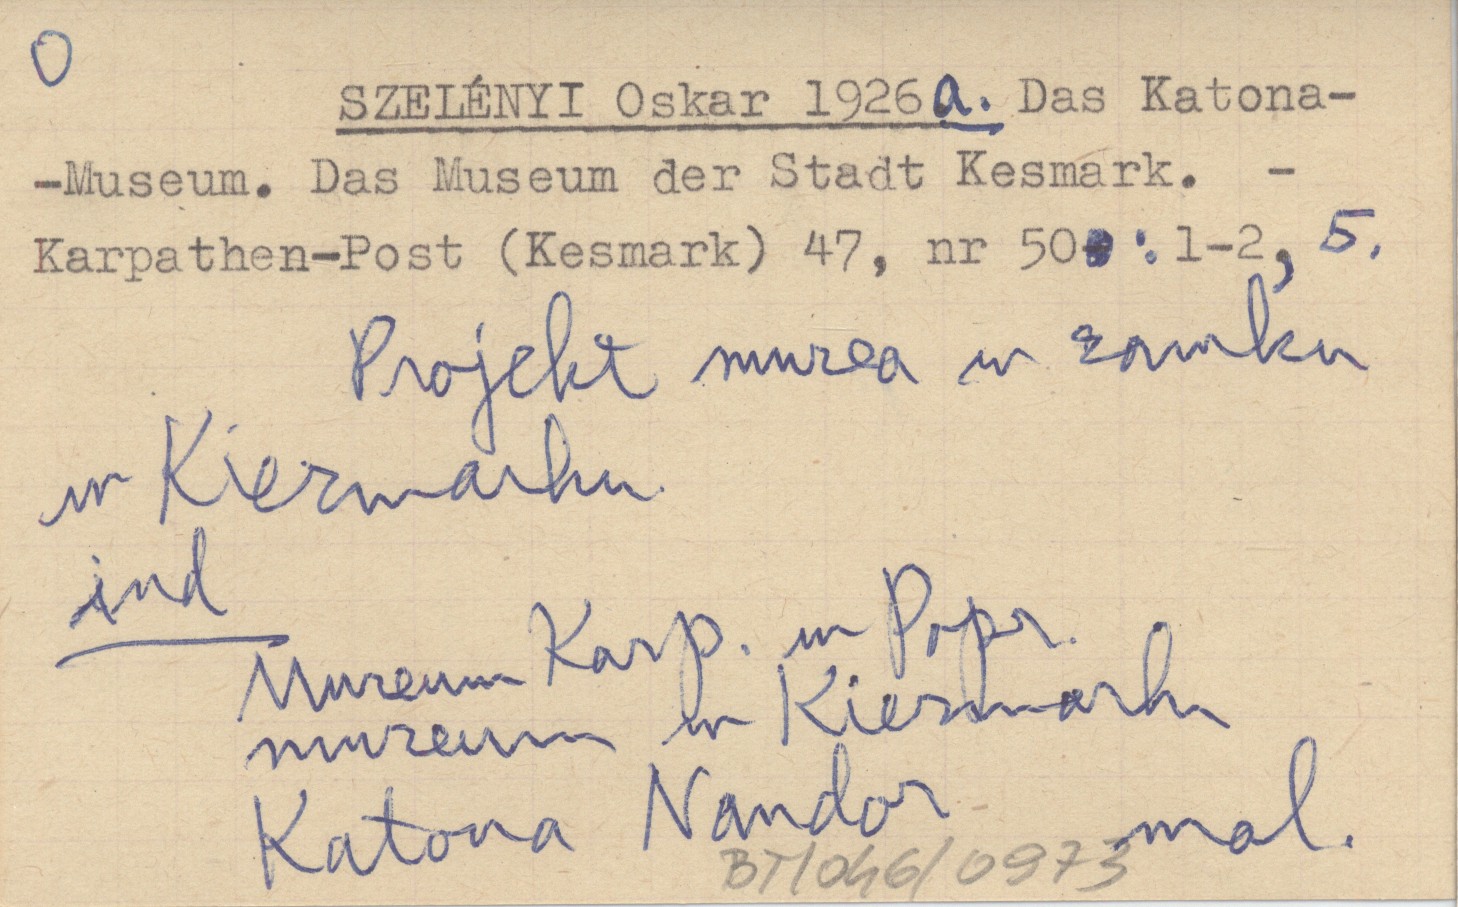 O
SZELÉNYI Oskar 1926a. Das Katona-
-Museum. Das Museum der Stadt Kesmark. -
Karpathen-Post (Kesmark) 47, nr 50: 1-2, 5.
Projekt muzea w zamku
w Kiezmarku.
ind
Muzeum Karp. w Popr.
muzeum w Kiezmarku
Katona Nandor mal.
BT/046/0973